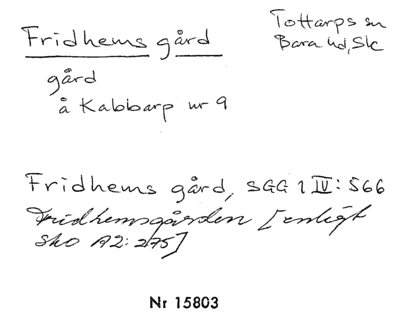 Fridhems gård
Tottarps sn
Bara hd, Sk
gård
å Kabbarp nr 9
Fridhems gård, SGG 1 IV: 566
Fridhemsgården [enligt
Sko A2: 275]
Nr 15803